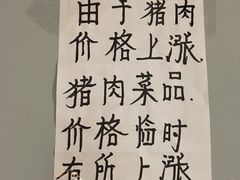 由于猪肉
价格上涨
猪肉菜品.
价格临时
有所上涨